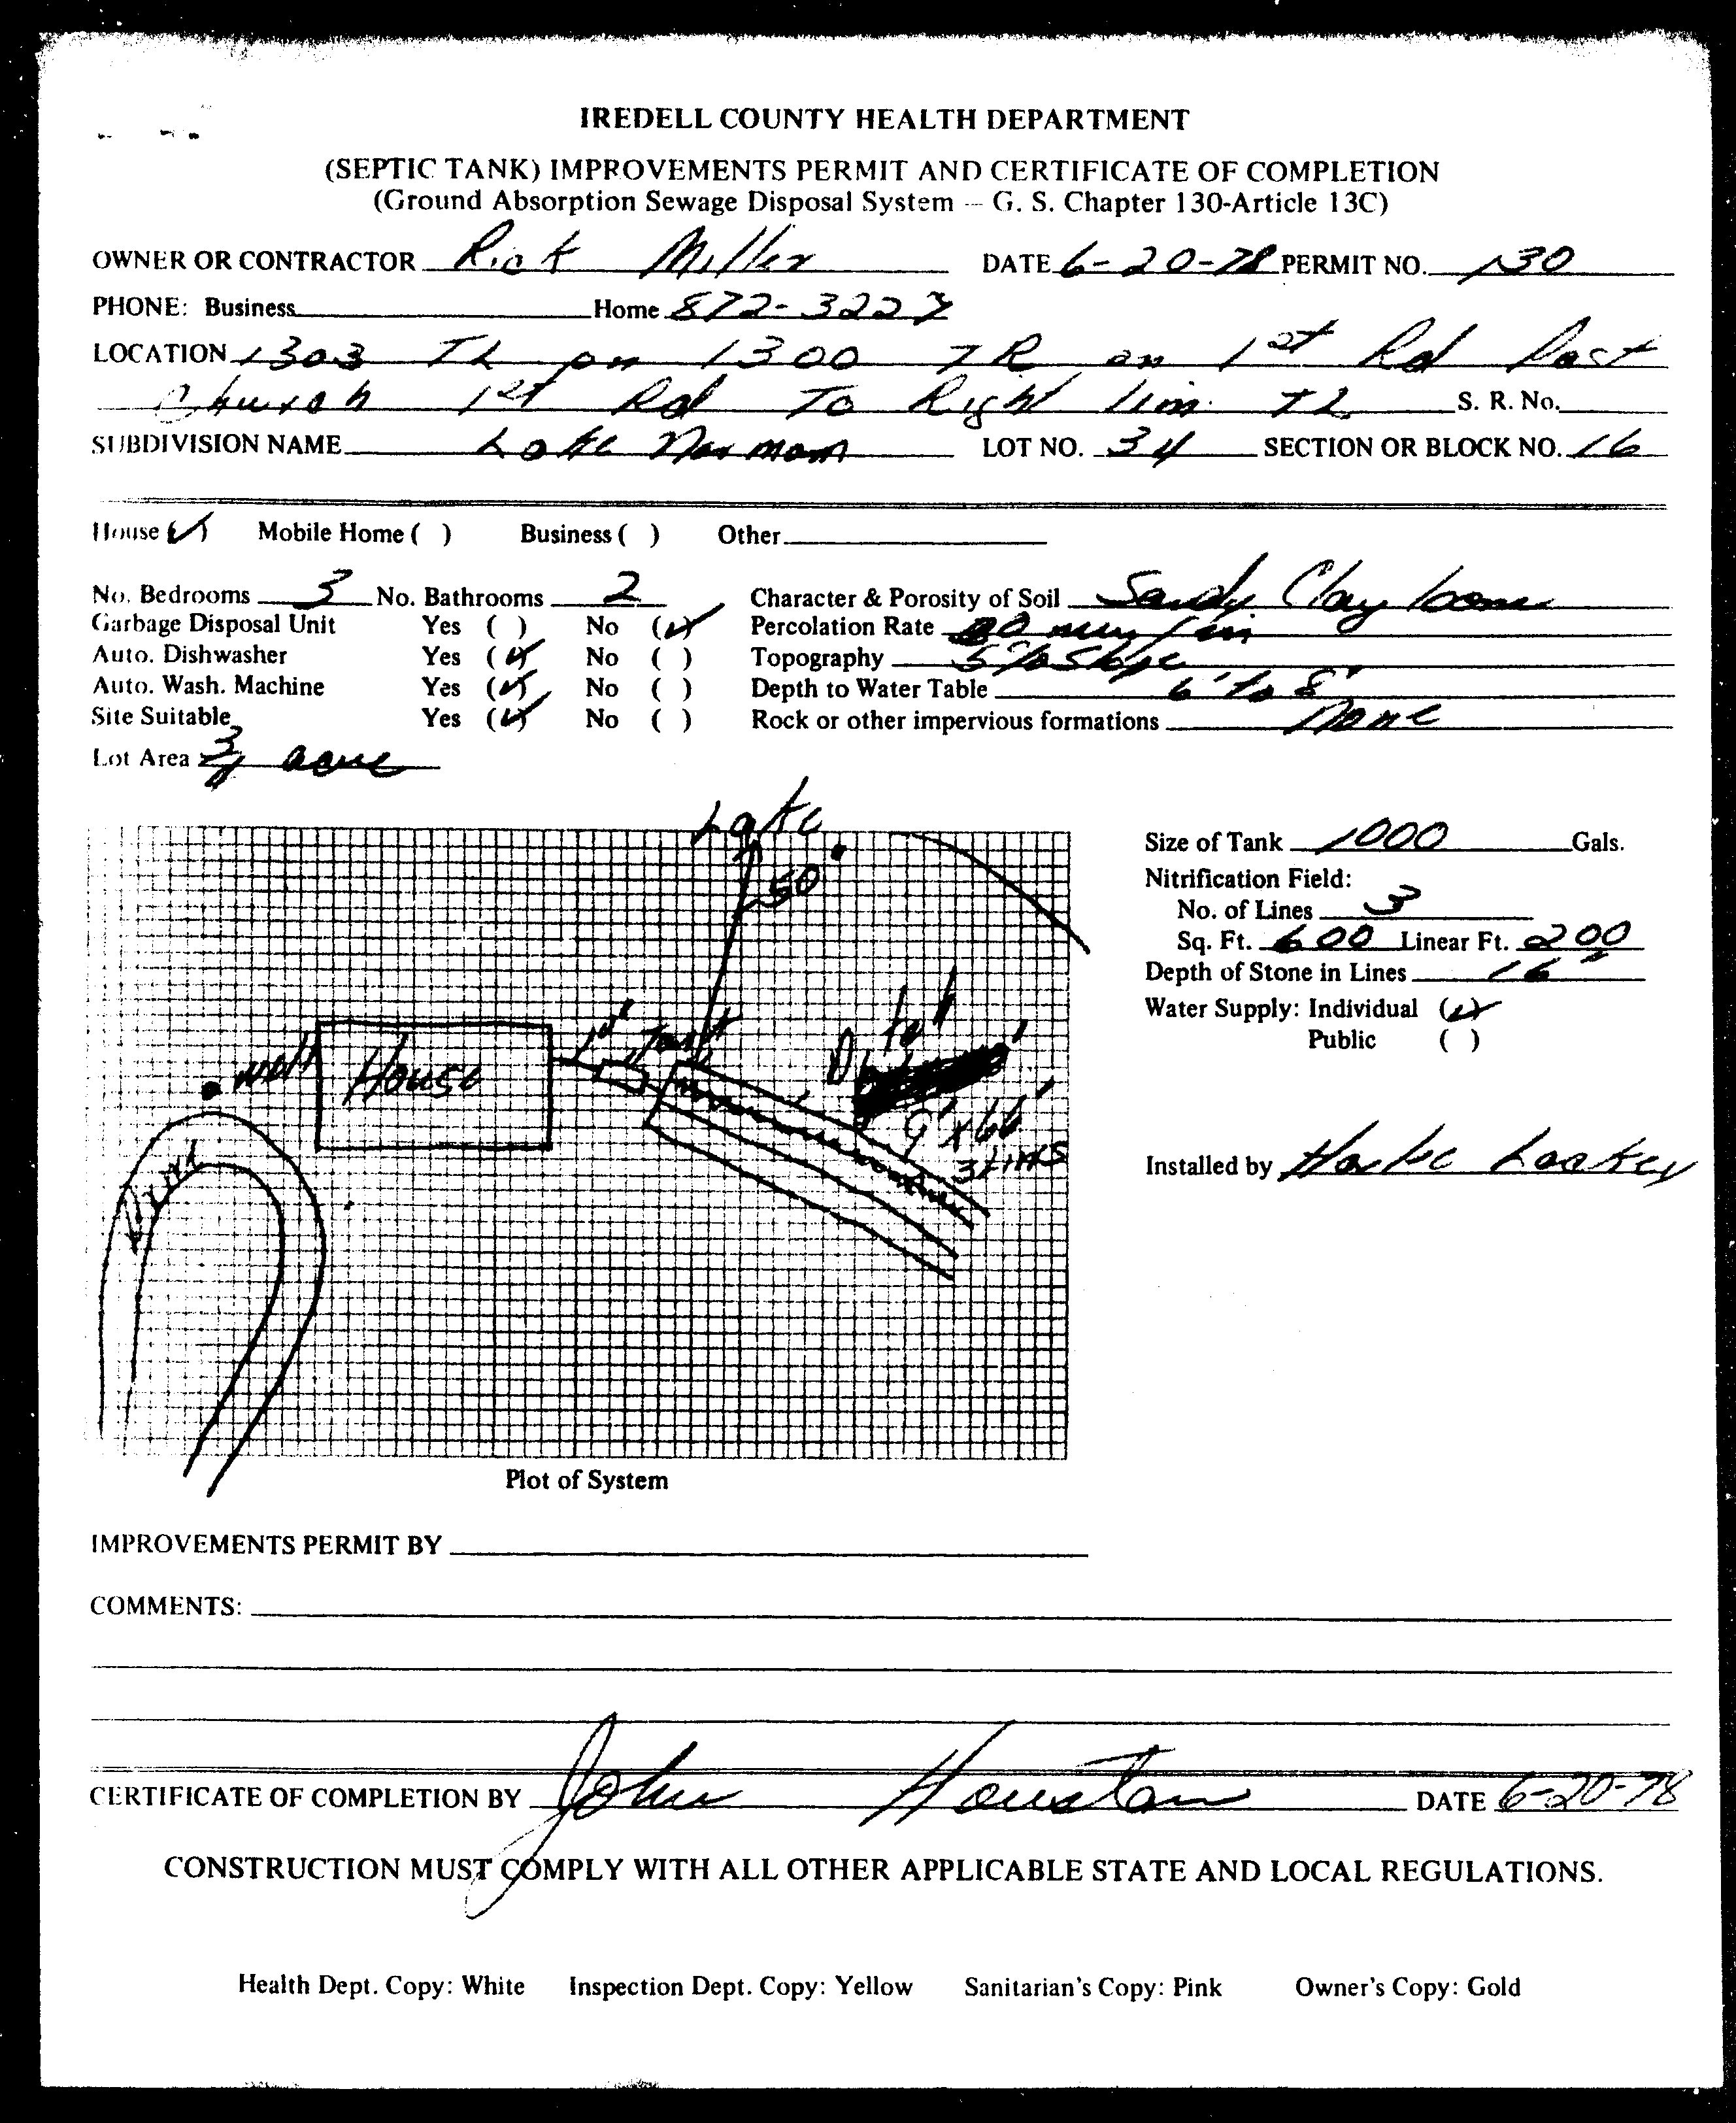 IREDELL COUNTY HEALTH DEPARTMENT
(SEPTIC TANK) IMPROVEMENTS PERMIT AND CERTIFICATE OF COMPLETION
(Ground Absorption Sewage Disposal System - G. S. Chapter 130-Article 13C)
OWNER OR CONTRACTOR Rick Miller DATE 6-20-78 PERMIT NO. 130
PHONE: Business Home 872-3227
LOCATION 1303 TL on 1300 TR on 1st Rd Past
Church 1st Rd To Right TL S. R. No.
SUBDIVISION NAME Lake Norman LOT NO. 34 SECTION OR BLOCK NO. 16
House (✓) Mobile Home ( ) Business ( ) Other
No. Bedrooms 3 No. Bathrooms 2 Character & Porosity of Soil Sandy Clay loam
Garbage Disposal Unit Yes ( ) No (✓) Percolation Rate min/in
Auto. Dishwasher Yes (✓) No ( ) Topography 5% Slope
Auto. Wash. Machine Yes (✓) No ( ) Depth to Water Table 6' to 8'
Site Suitable Yes (✓) No ( ) Rock or other impervious formations None
Lot Area 3/4 acre
Lake
50'
Size of Tank 1000 Gals.
Nitrification Field:
No. of Lines 3
Sq. Ft. 600 Linear Ft. 200
Depth of Stone in Lines 16"
Water Supply: Individual (✓)
Public ( )
well House Tank
3'x66'
3 Lines
Drive
Installed by
Plot of System
IMPROVEMENTS PERMIT BY
COMMENTS:
CERTIFICATE OF COMPLETION BY John Houston DATE 6-20-78
CONSTRUCTION MUST COMPLY WITH ALL OTHER APPLICABLE STATE AND LOCAL REGULATIONS.
Health Dept. Copy: White Inspection Dept. Copy: Yellow Sanitarian's Copy: Pink Owner's Copy: Gold